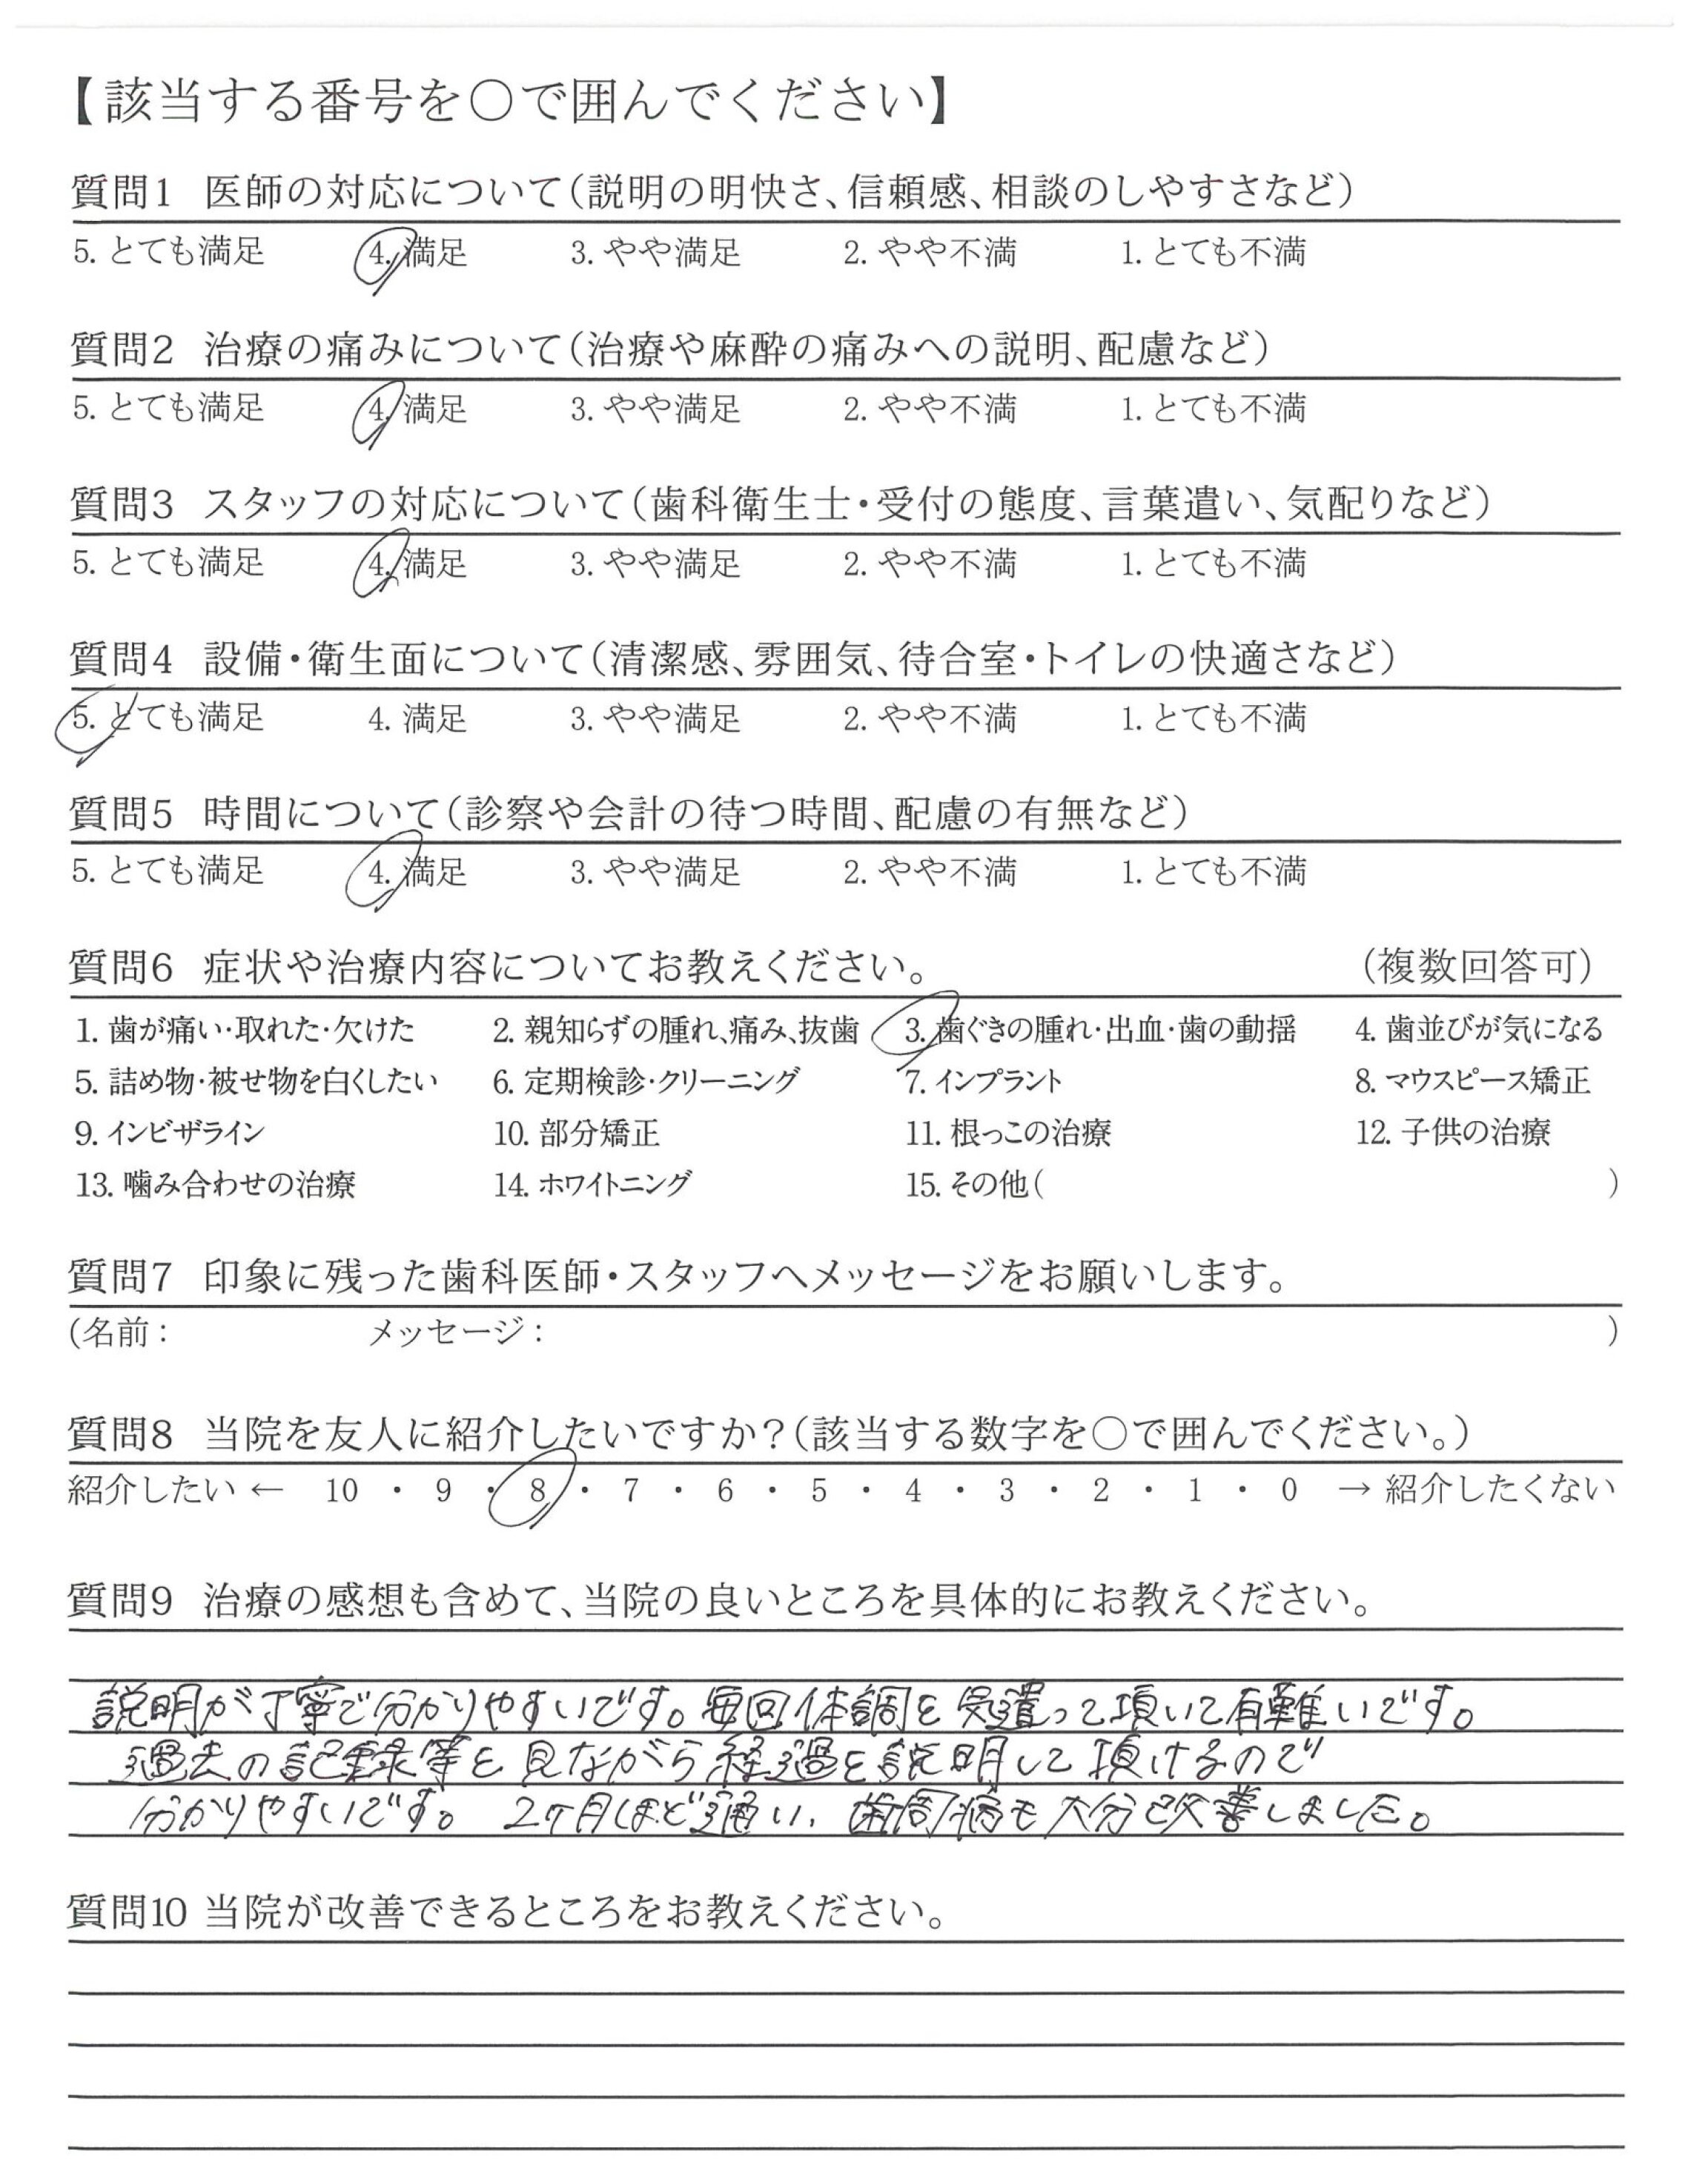 【該当する番号を〇で囲んでください】
質問1 医師の対応について(説明の明快さ、信頼感、相談のしやすさなど)
5. とても満足 4. 満足 3. やや満足 2. やや不満 1. とても不満
質問2 治療の痛みについて(治療や麻酔の痛みへの説明、配慮など)
5. とても満足 4. 満足 3. やや満足 2. やや不満 1. とても不満
質問3 スタッフの対応について(歯科衛生士・受付の態度、言葉遣い、気配りなど)
5. とても満足 4. 満足 3. やや満足 2. やや不満 1. とても不満
質問4 設備・衛生面について(清潔感、雰囲気、待合室・トイレの快適さなど)
5. とても満足 4. 満足 3. やや満足 2. やや不満 1. とても不満
質問5 時間について(診察や会計の待つ時間、配慮の有無など)
5. とても満足 4. 満足 3. やや満足 2. やや不満 1. とても不満
質問6 症状や治療内容についてお教えください。 (複数回答可)
1. 歯が痛い・取れた・欠けた 2. 親知らずの腫れ、痛み、抜歯 3. 歯ぐきの腫れ・出血・歯の動揺 4. 歯並びが気になる
5. 詰め物・被せ物を白くしたい 6. 定期検診・クリーニング 7. インプラント 8. マウスピース矯正
9. インビザライン 10. 部分矯正 11. 根っこの治療 12. 子供の治療
13. 噛み合わせの治療 14. ホワイトニング 15. その他( )
質問7 印象に残った歯科医師・スタッフへメッセージをお願いします。
(名前: メッセージ: )
質問8 当院を友人に紹介したいですか?(該当する数字を〇で囲んでください。)
紹介したい ← 10 ・ 9 ・ 8 ・ 7 ・ 6 ・ 5 ・ 4 ・ 3 ・ 2 ・ 1 ・ 0 → 紹介したくない
質問9 治療の感想も含めて、当院の良いところを具体的にお教えください。
説明が丁寧で分かりやすいです。毎回体調を気遣って頂いて有難いです。
過去の記録等を見ながら経過を説明して頂けるので
分かりやすいです。2ヶ月ほど通い、歯周病も大分改善しました。
質問10 当院が改善できるところをお教えください。